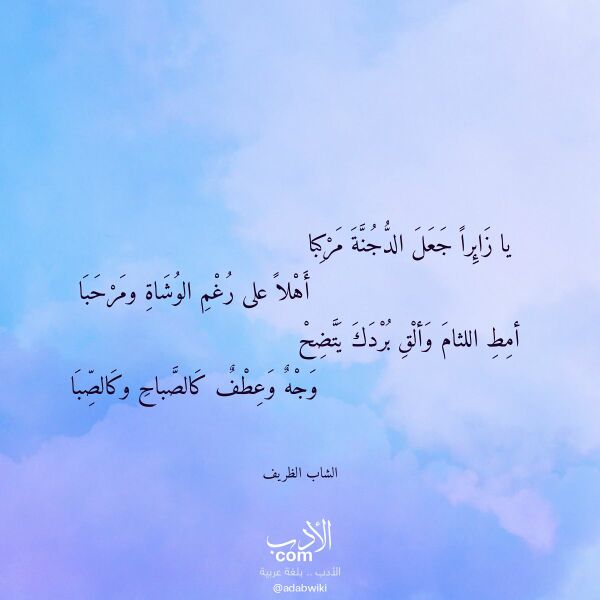 يا زَايِٕراً جَعَلَ الدُّجُنَّةَ مَرْكِبا
أَهْلاً على رُغْمِ الوُشَاةِ ومَرْحَبَا
أمِطِ اللثامَ وَألْقِ بُرْدَكَ يَتَّضِحْ
وَجْهٌ وَعِطْفٌ كَالصَّباحِ وكَالصِّبَا
الشاب الظريف
الأدب
com
الأدب .. بلغة عربية
@adabwiki